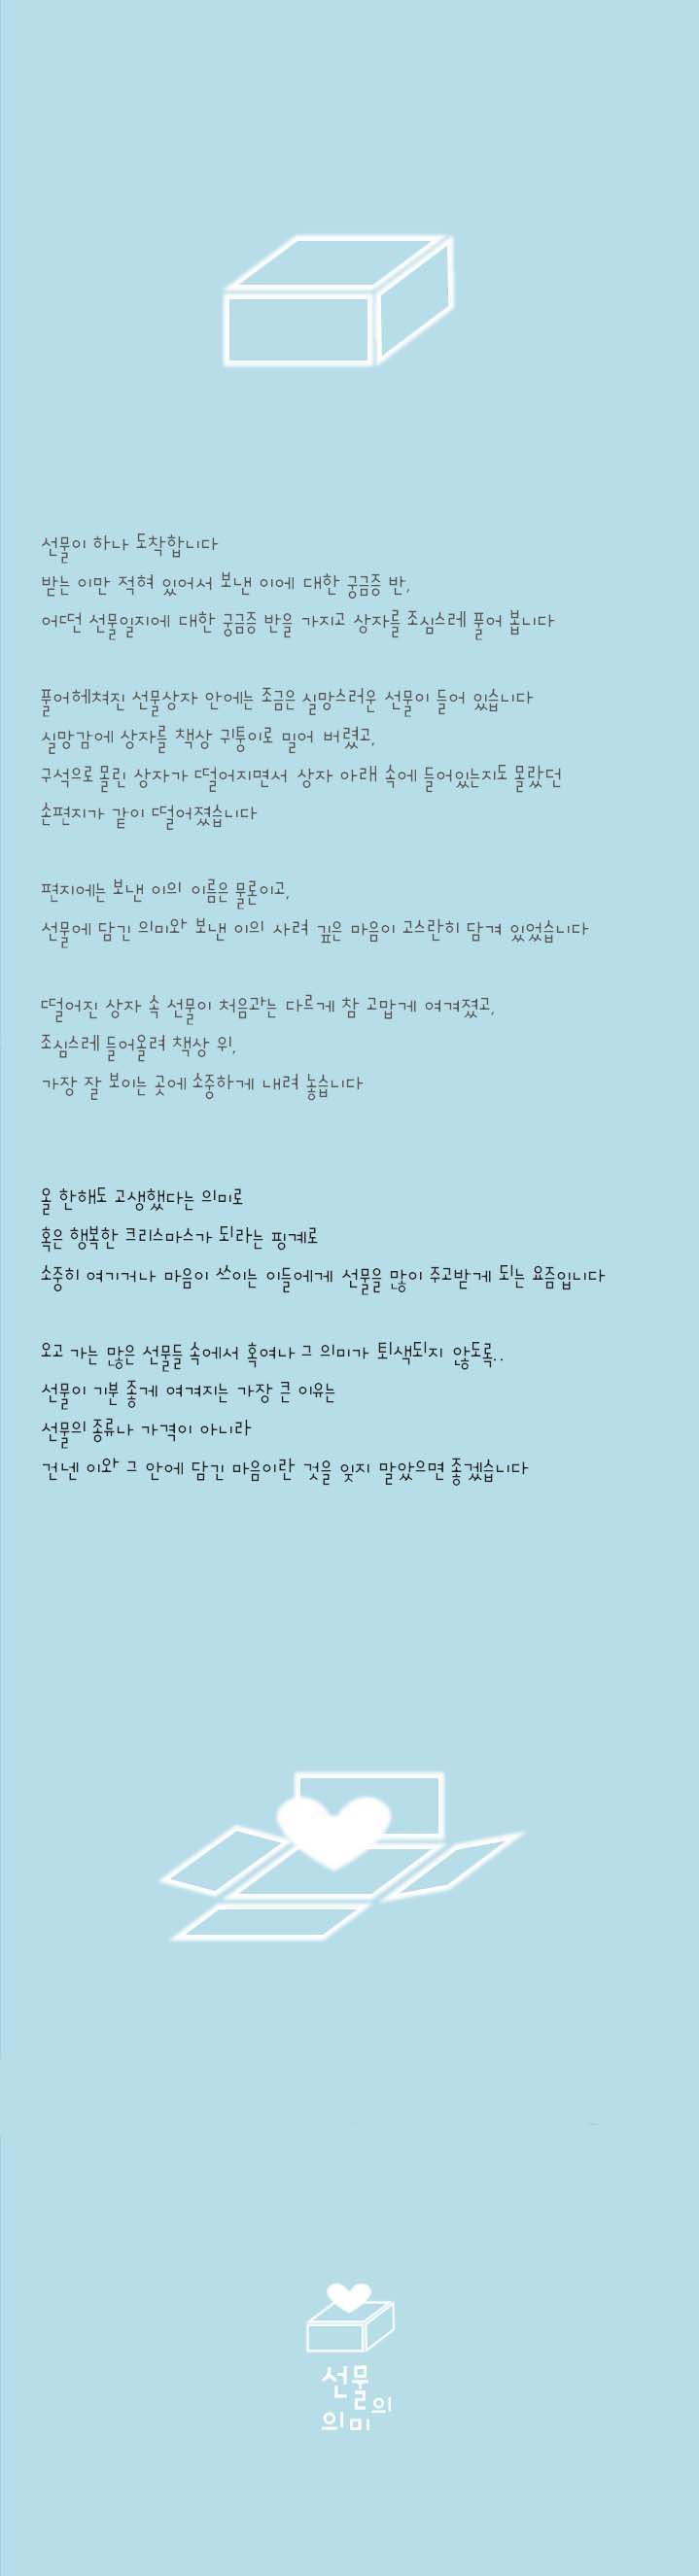 선물이 하나 도착합니다
받는 이만 적혀 있어서 보낸 이에 대한 궁금증 반,
어떤 선물일지에 대한 궁금증 반을 가지고 상자를 조심스레 풀어 봅니다
풀어헤쳐진 선물상자 안에는 조금은 실망스러운 선물이 들어 있습니다
실망감에 상자를 책상 귀퉁이로 밀어 버렸고,
구석으로 몰린 상자가 떨어지면서 상자 아래 속에 들어있는지도 몰랐던
손편지가 같이 떨어졌습니다
편지에는 보낸 이의 이름은 물론이고,
선물에 담긴 의미와 보낸 이의 사려 깊은 마음이 고스란히 담겨 있었습니다
떨어진 상자 속 선물이 처음과는 다르게 참 고맙게 여겨졌고,
조심스레 들어올려 책상 위,
가장 잘 보이는 곳에 소중하게 내려 놓습니다
올 한해도 고생했다는 의미로
혹은 행복한 크리스마스가 되라는 핑계로
소중히 여기거나 마음이 쓰이는 이들에게 선물을 많이 주고받게 되는 요즘입니다
오고 가는 많은 선물들 속에서 혹여나 그 의미가 퇴색되지 않도록..
선물이 기분 좋게 여겨지는 가장 큰 이유는
선물의 종류나 가격이 아니라
건넨 이와 그 안에 담긴 마음이란 것을 잊지 말았으면 좋겠습니다
선물의
의미